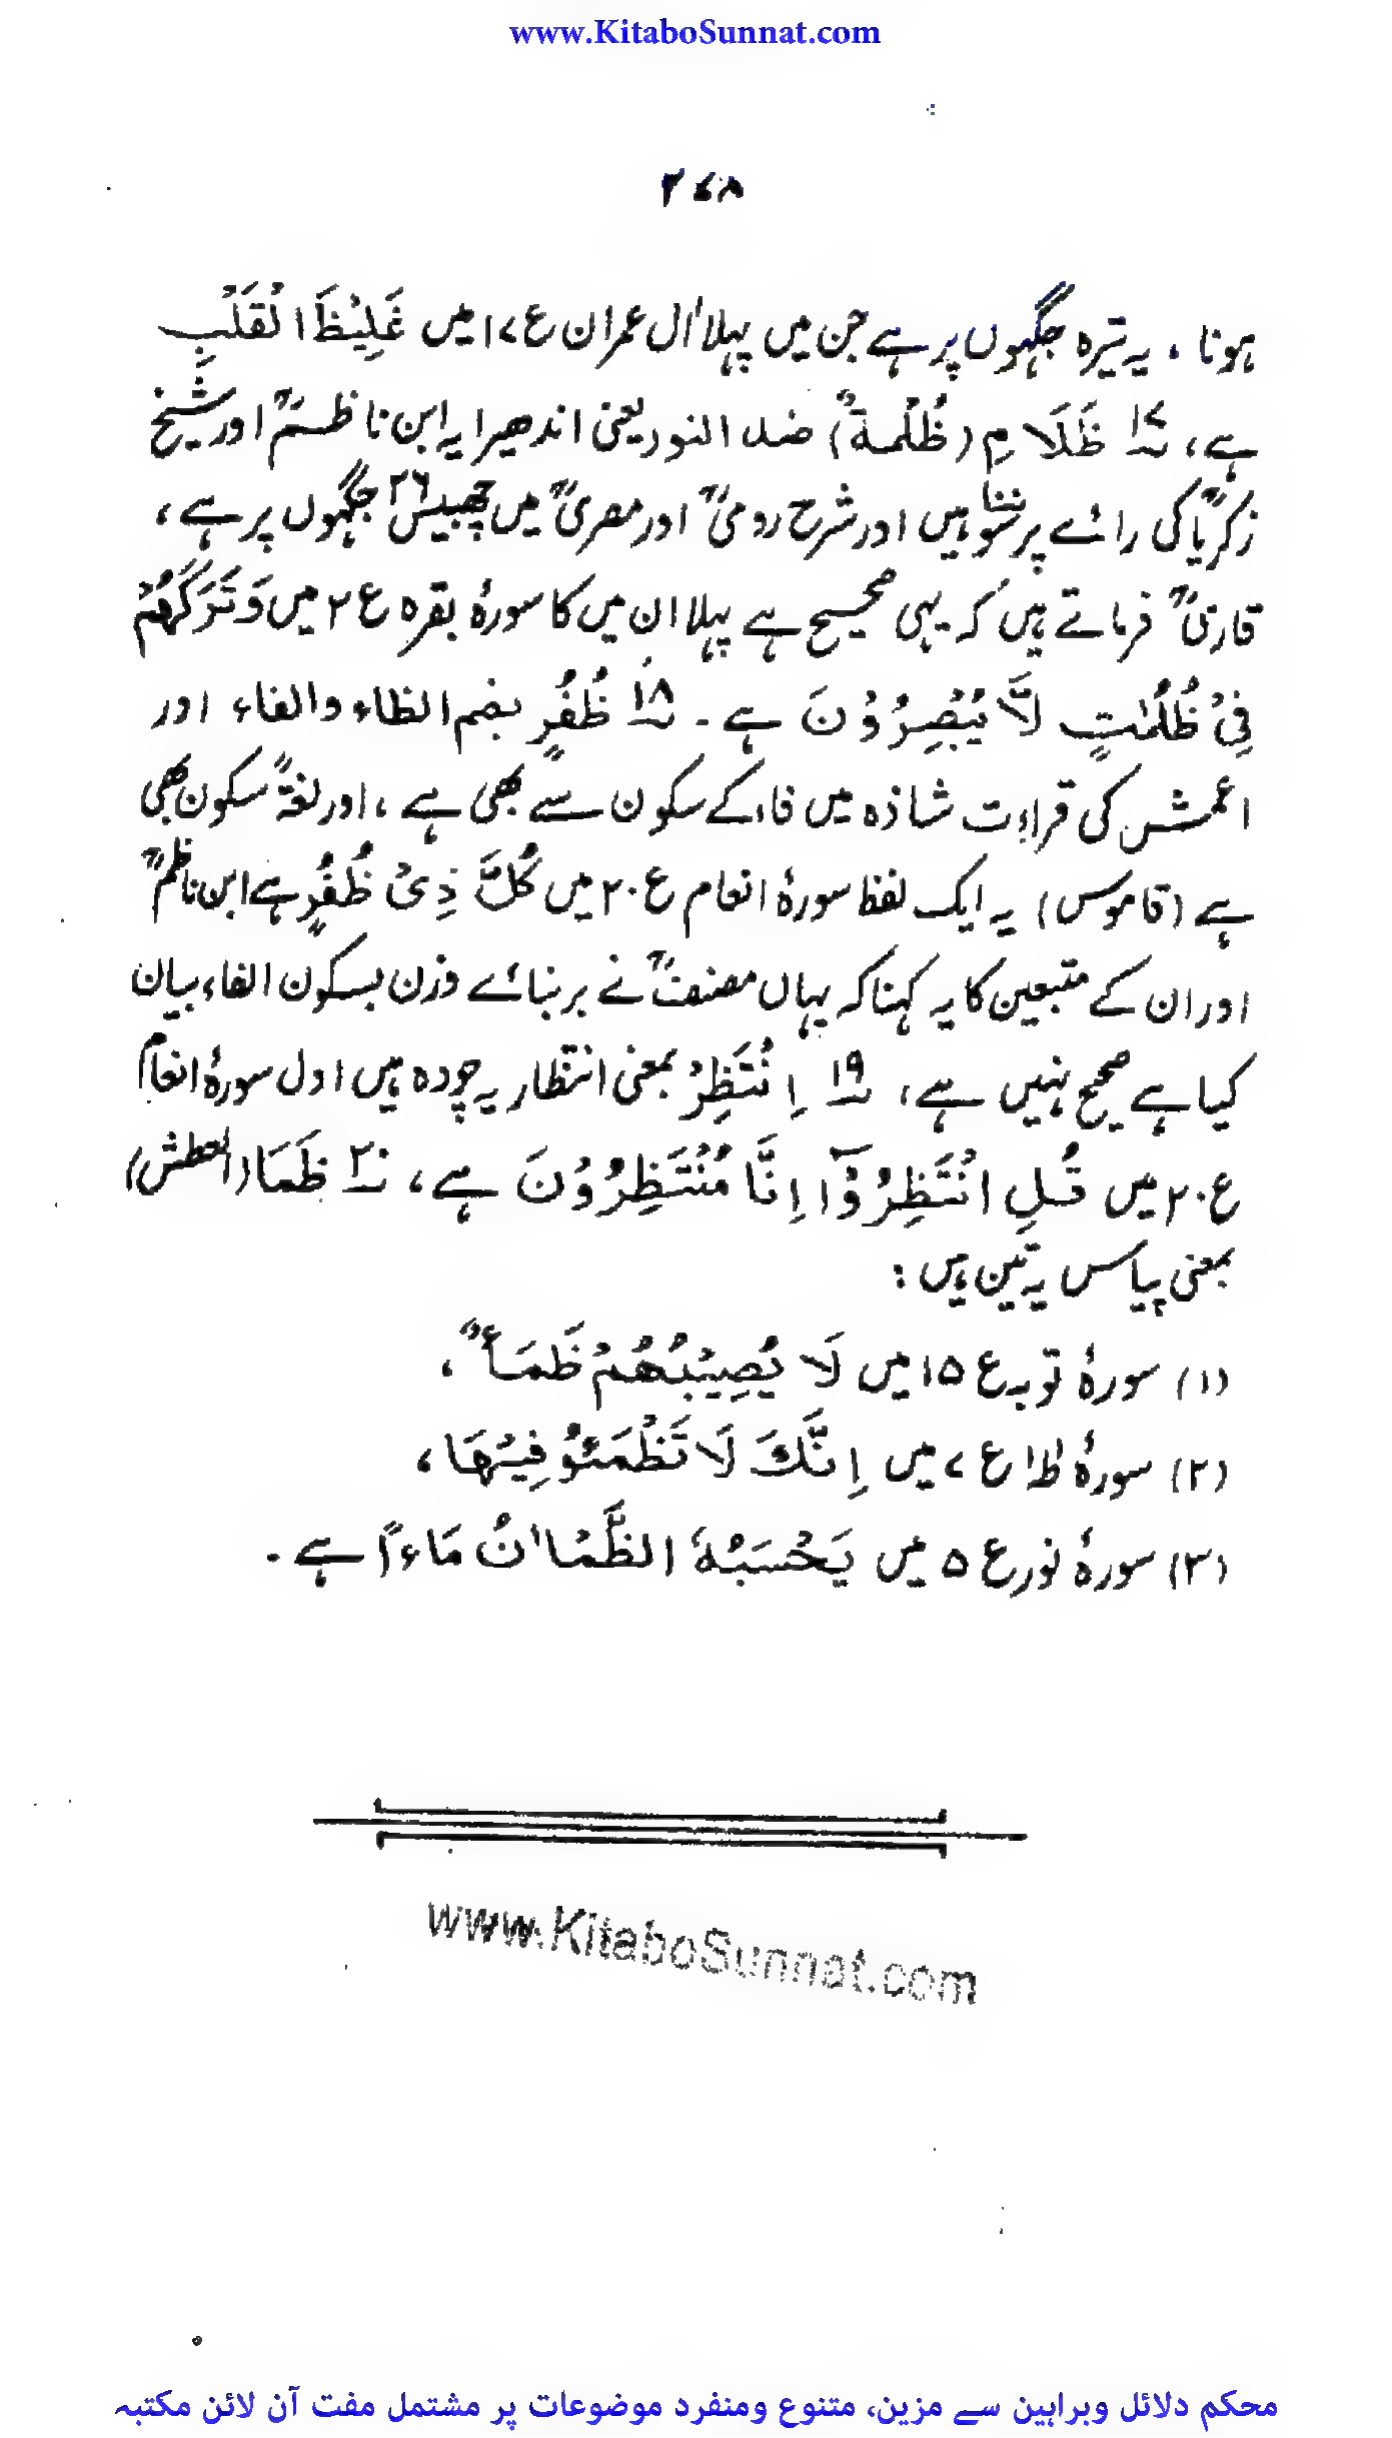 www.KitaboSunnat.com
۲۷۸
ہونا ، یہ تیرہ جگہوں پر ہے جن میں پہلا اٰل عمران ع ۱۷ میں غَلِیْظَ الْقَلْبِ
ہے، ۱۷؎ ظَلَامِ (ظُلْمَۃٌ) ضد النور یعنی اندھیرا یہ ابن ناظمؒ اور شیخ
زکریاؒ کی رائے پر سو ہیں اور شرح رومیؒ اور مصریؒ میں چھبیس ۲۶ جگہوں پر ہے،
قاریؒ فرماتے ہیں کہ یہی صحیح ہے پہلا ان میں کا سورۂ بقرہ ع ۲ میں وَتَرَكَهُمْ
فِیْ ظُلُمٰتٍ لَّا یُبْصِرُوْنَ ہے۔ ۱۸؎ ظُفُرٍ بضم الظاء والفاء اور
اعمش کی قراءت شاذہ میں فاء کے سکون سے بھی ہے ، اور لغۃً سکون بھی
ہے (قاموس) یہ ایک لفظ سورۂ انعام ع ۲۰ میں کُلَّ ذِیْ ظُفُرٍ ہے ابن ناظمؒ
اور ان کے متبعین کا یہ کہنا کہ یہاں مصنفؒ نے بربنائے وزن بسکون الفاء بیان
کیا ہے صحیح نہیں ہے، ۱۹؎ اِنْتَظِرْ بمعنی انتظار یہ چودہ ہیں اول سورۂ انعام
ع ۲۰ میں قُلِ انْتَظِرُوْٓا اِنَّا مُنْتَظِرُوْنَ ہے، ۲۰؎ ظَمَا (العطش)
بمعنی پیاس یہ تین ہیں :
(۱) سورۂ توبہ ع ۱۵ میں لَا یُصِیْبُهُمْ ظَمَأٌ ،
(۲) سورۂ طٰہٰ ع ۷ میں اِنَّكَ لَا تَظْمَئُوْ فِیْهَا ،
(۳) سورۂ نور ع ۵ میں یَحْسَبُهُ الظَّمْاٰنُ مَاءً ہے ۔
www.KitaboSunnat.com
محکم دلائل وبراہین سے مزین، متنوع ومنفرد موضوعات پر مشتمل مفت آن لائن مکتبہ